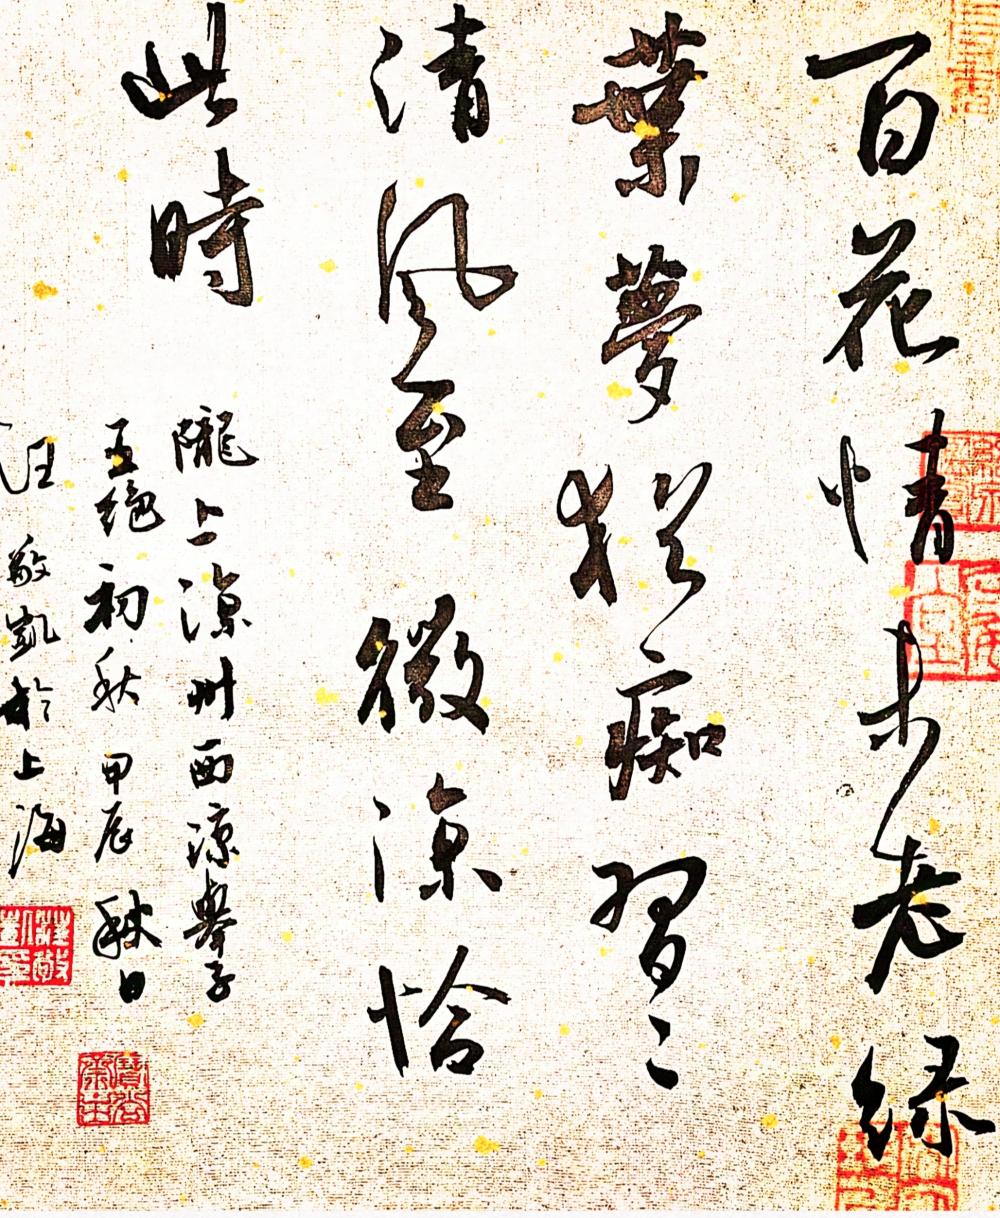 百花情未老緑
葉夢猶痴習々
清風至微涼恰
此時
隴上涼州西涼舉子
五絕初秋甲辰秋日
汪敬凱於上海